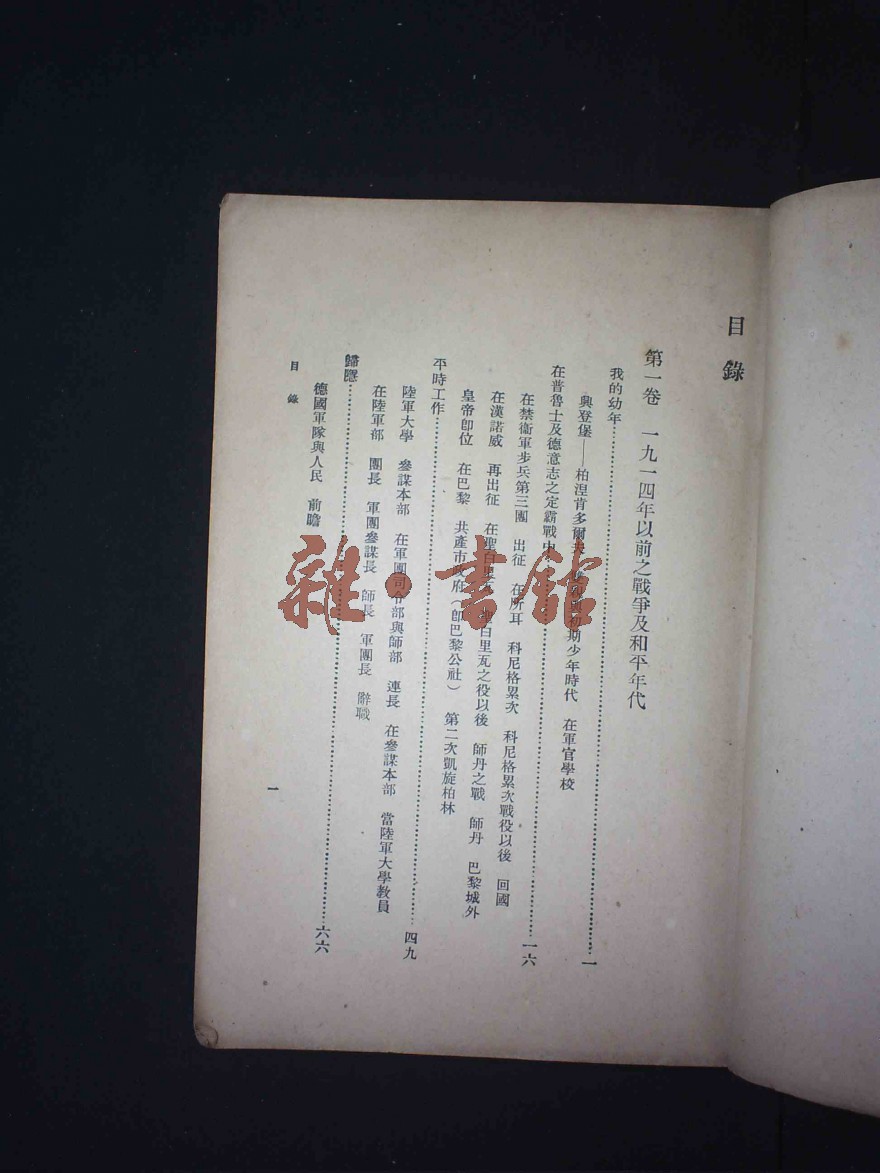 目錄
第一卷 一九一四年以前之戰爭及和平年代
我的幼年……一
興登堡——柏湼肯多爾夫 初期少年時代 在軍官學校
在普魯士及德意志之定霸戰中……一六
在禁衞軍步兵第三團 出征 在所耳 科尼格累次 科尼格累次戰役以後 回國
在漢諾威 再出征 在聖白里瓦 聖白里瓦之役以後 師丹之戰 師丹 巴黎城外
皇帝卽位 在巴黎 共產市政府(卽巴黎公社) 第二次凱旋柏林
平時工作……四九
陸軍大學 參謀本部 在軍團司令部與師部 連長 在參謀本部 當陸軍大學教員
在陸軍部 團長 軍團參謀長 師長 軍團長 辭職
歸隱……六六
德國軍隊與人民 前瞻
目錄
一
雜·書館